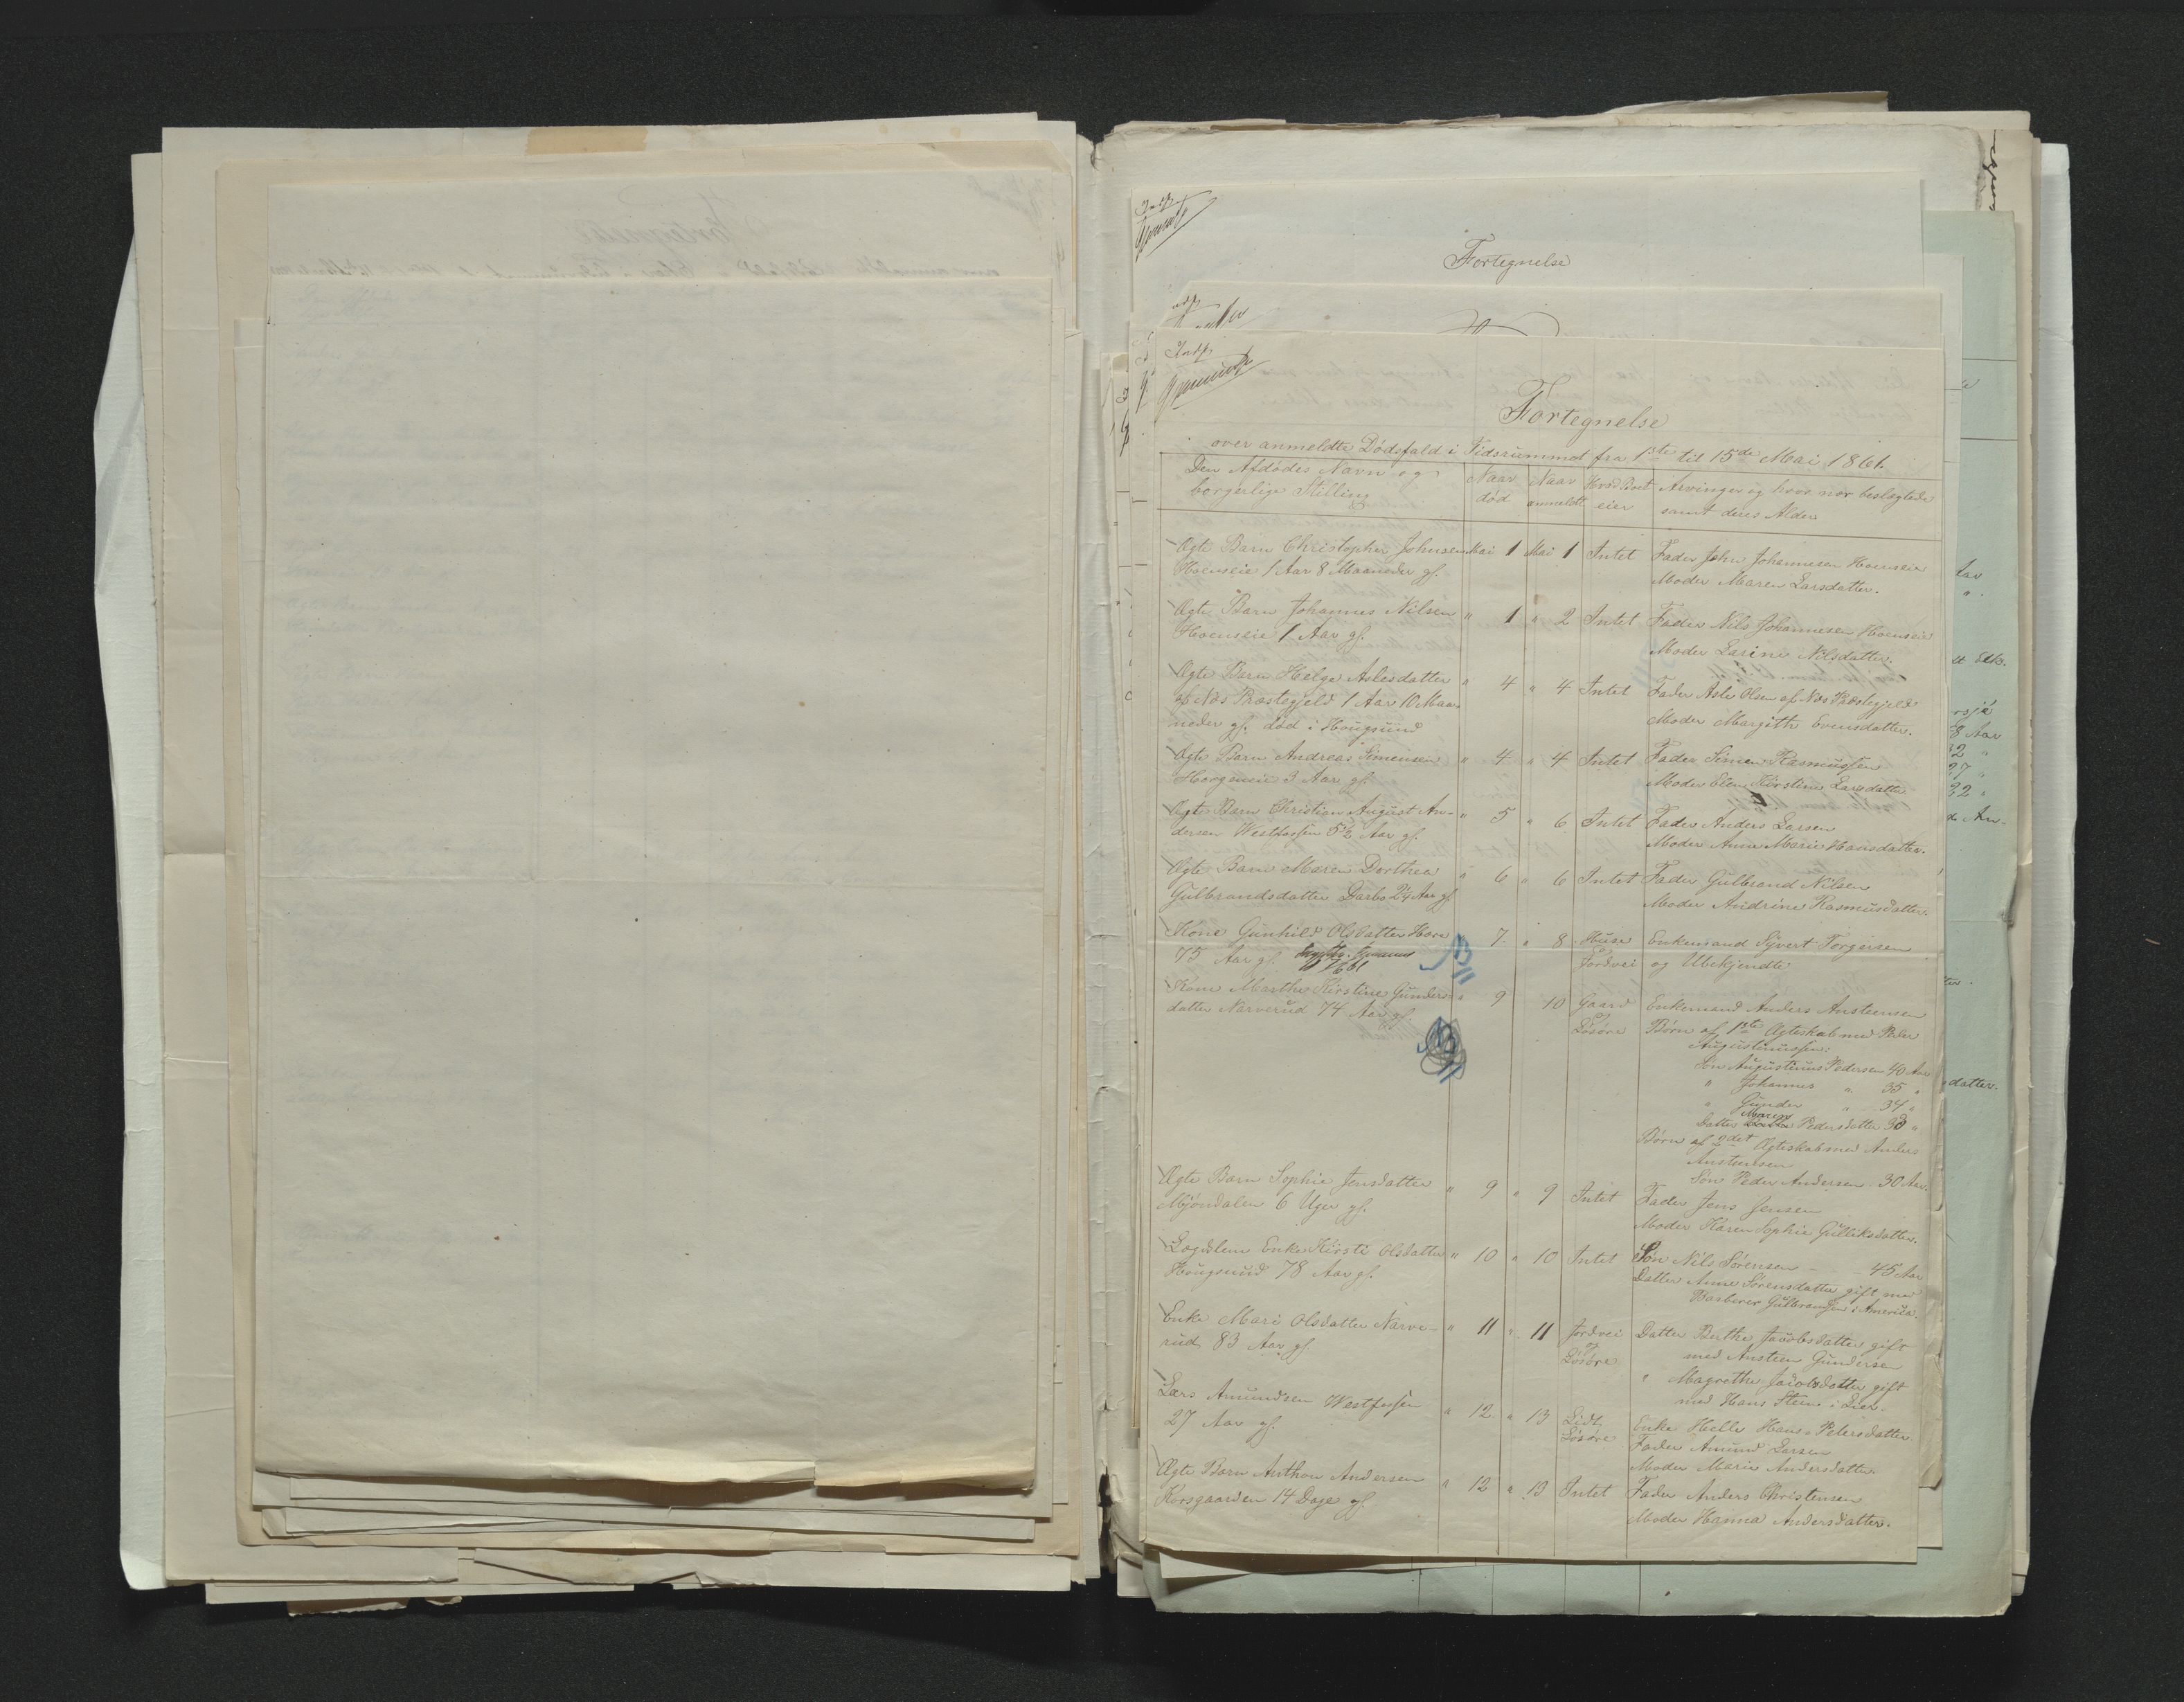 Fortegnelse
Fortegnelse
over anmeldte Dødsfald i Tidsrummet fra 1ste til 15de Mai 1861.
Den Afdødes Navn og borgerlige Stilling
Naar død
Naar anmeldt
Hvad Boet eier
Arvinger og hvor nær beslægtede samt deres Alder
Ægte Barn Christopher Johnsen Mai 1 Mai 1 Intet Fader John Johannesen Hoenseie
Hoenseie 1 Aar 8 Maaneder gl. Moder Maren Larsdatter.
Ægte Barn Johannes Nilsen " 1 " 2 Intet Fader Nils Johannesen Hoenseie
Hoenseie 1 Aar gl. Moder Larine Nilsdatter.
Ægte Barn Helge Aslesdatter " 4 " 4 Intet Fader Asle Olsen af Næs Præstegjeld
af Næs Præstegjeld 1 Aar 10 Maa- Moder Margith Evensdatter.
neder gl. død i Hougsund
Ægte Barn Andreas Simensen " 4 " 4 Intet Fader Simen Rasmussen
Horgeneie 3 Aar gl. Moder Elen Kirstine Larsdatter
Ægte Barn Christian August An- " 5 " 6 Intet Fader Anders Larsen
dersen Westfossen 5½ Aar gl. Moder Anne Marie Hansdatter.
Ægte Barn Maren Dorthea " 6 " 6 Intet Fader Gulbrand Nilsen
Gulbrandsdatter Darbo 2¼ Aar gl. Moder Andrine Rasmusdatter.
Kone Gunhild Olsdatter Hore " 7 " 8 Huse Enkemand Syvert Torgersen
75 Aar gl. og Jordvei og Ubekjendte
Kone Marthe Kirstine Gunders- " 9 10 Gaard Enkemand Anders Ansteensen
datter Narverud 74 Aar gl. og Løsøre Børn af 1ste Ægteskab med Peder
Augustinussen:
Søn Augustinus Pedersen 40 Aar
" Johannes " 35 "
" Gunder " 34 "
Datter Maren Pedersdatter 38 "
Børn af 2det Ægteskab med Anders
Ansteensen
Søn Peder Andersen 30 Aar.
Ægte Barn Sophie Jensdatter " 9 " 9 Intet Fader Jens Jensen
Mjøndalen 6 Uger gl. Moder Karen Sophie Gulliksdatter.
Lægdslem Enke Kirsti Olsdatter " 10 " 10 Intet Søn Nils Sørensen 45 Aar
Hougsund 78 Aar gl. Datter Anne Sørensdatter gift med
Barberer Gulbrandsen i Amerika.
Enke Mari Olsdatter Narve- " 11 " 11 Jordvei Datter Berthe Jacobsdatter gift
rud 83 Aar gl og Løsøre med Ansteen Gundersen
" Magrethe Jacobsdatter gift
med Hans Steen i Lier.
Lars Amundsen Westfossen " 12 " 13 Lidt Enke Helle Hans-Petersdatter
27 Aar gl. Løsøre Fader Amund Larsen
Moder Marie Andersdatter.
Ægte Barn Anthon Andersen " 12 " 13 Intet Fader Anders Christensen
Korsgaarden 14 Dage gl. Moder Hanna Andersdatter.